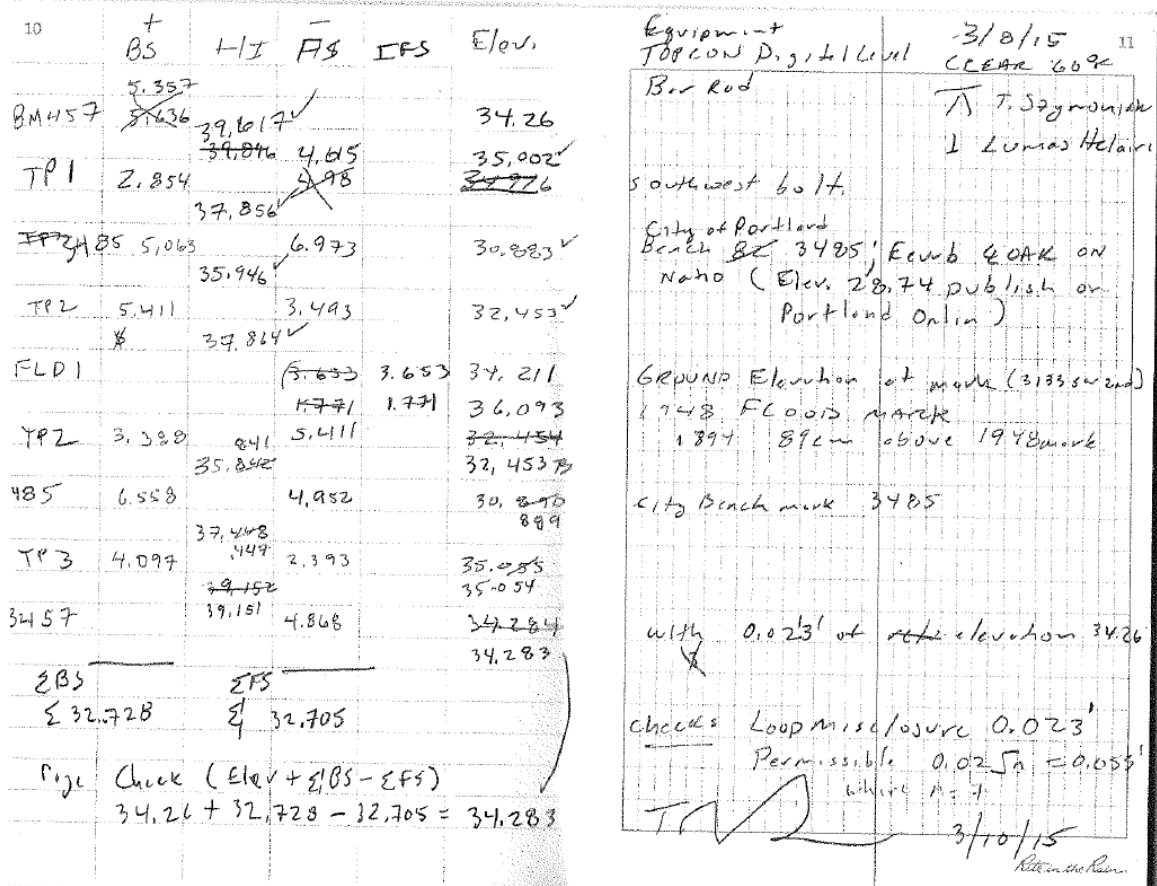 10
+ −
BS H/I FS IFS Elev.
5.357
BM457 5.636 34.26
39.617 ✓
39.896 4.615 35.002 ✓
TP1 2.854 4.98 34.926
37.856 ✓
3485 5.063 6.973 30.883 ✓
35.946 ✓
TP2 5.411 3.493 32.453 ✓
37.864 ✓
FLD1 3.653 3.653 34.211
1.771 1.771 36.093
TP2 3.388 841 5.411 32.454
35.842 32,453
485 6.558 4.952 30.890
889
37.448
.447
TP3 4.097 2.393 35.055
39.152 35.054
39.151
3457 4.868 34.284
34.283
ΣBS ΣFS
Σ 32.728 Σ 32.705
Page Check (Elev + ΣBS - ΣFS)
34.26 + 32.728 - 32.705 = 34.283
Equipment 3/8/15 11
TOPCON Digital Level CLEAR 60°
Bar Rod T. Szymoniak
Lumas Helaire
southwest bolt.
City of Portland
Bench 3485; E curb & OAK ON
Naito (Elev. 28.74' publish on
Portland Onlin)
GROUND Elevation at mark (3133 SW 2nd)
1948 FLOOD MARK
1894 89cm above 1948 mark
City Bench mark 3485
with 0.023' of elevation 34.26
checks Loop misclosure 0.023'
Permissible 0.02√n = 0.053'
where n = 7
3/10/15
Rite in the Rain